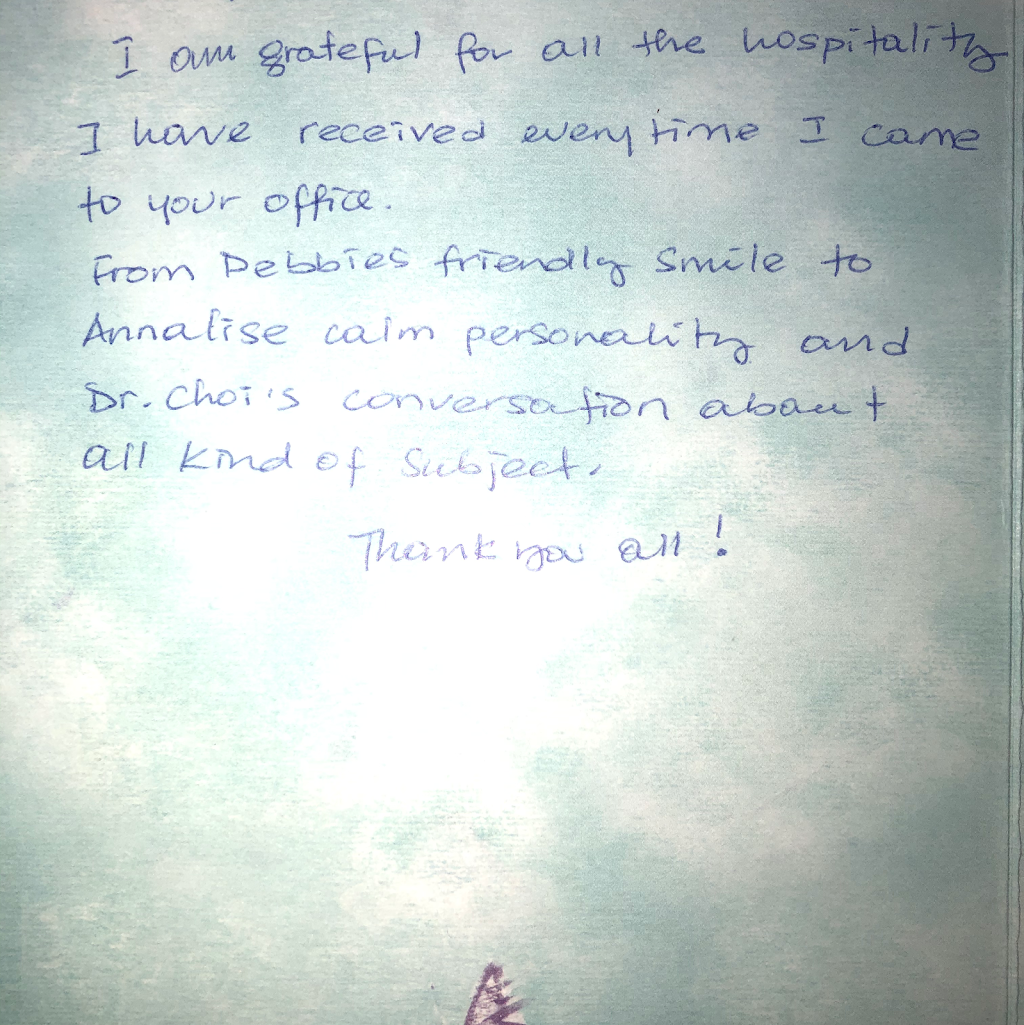 I am grateful for all the hospitality
I have received every time I came
to your office.
From Debbies friendly smile to
Annalise calm personality and
Dr. Choi's conversation about
all kind of Subject.
Thank you all !